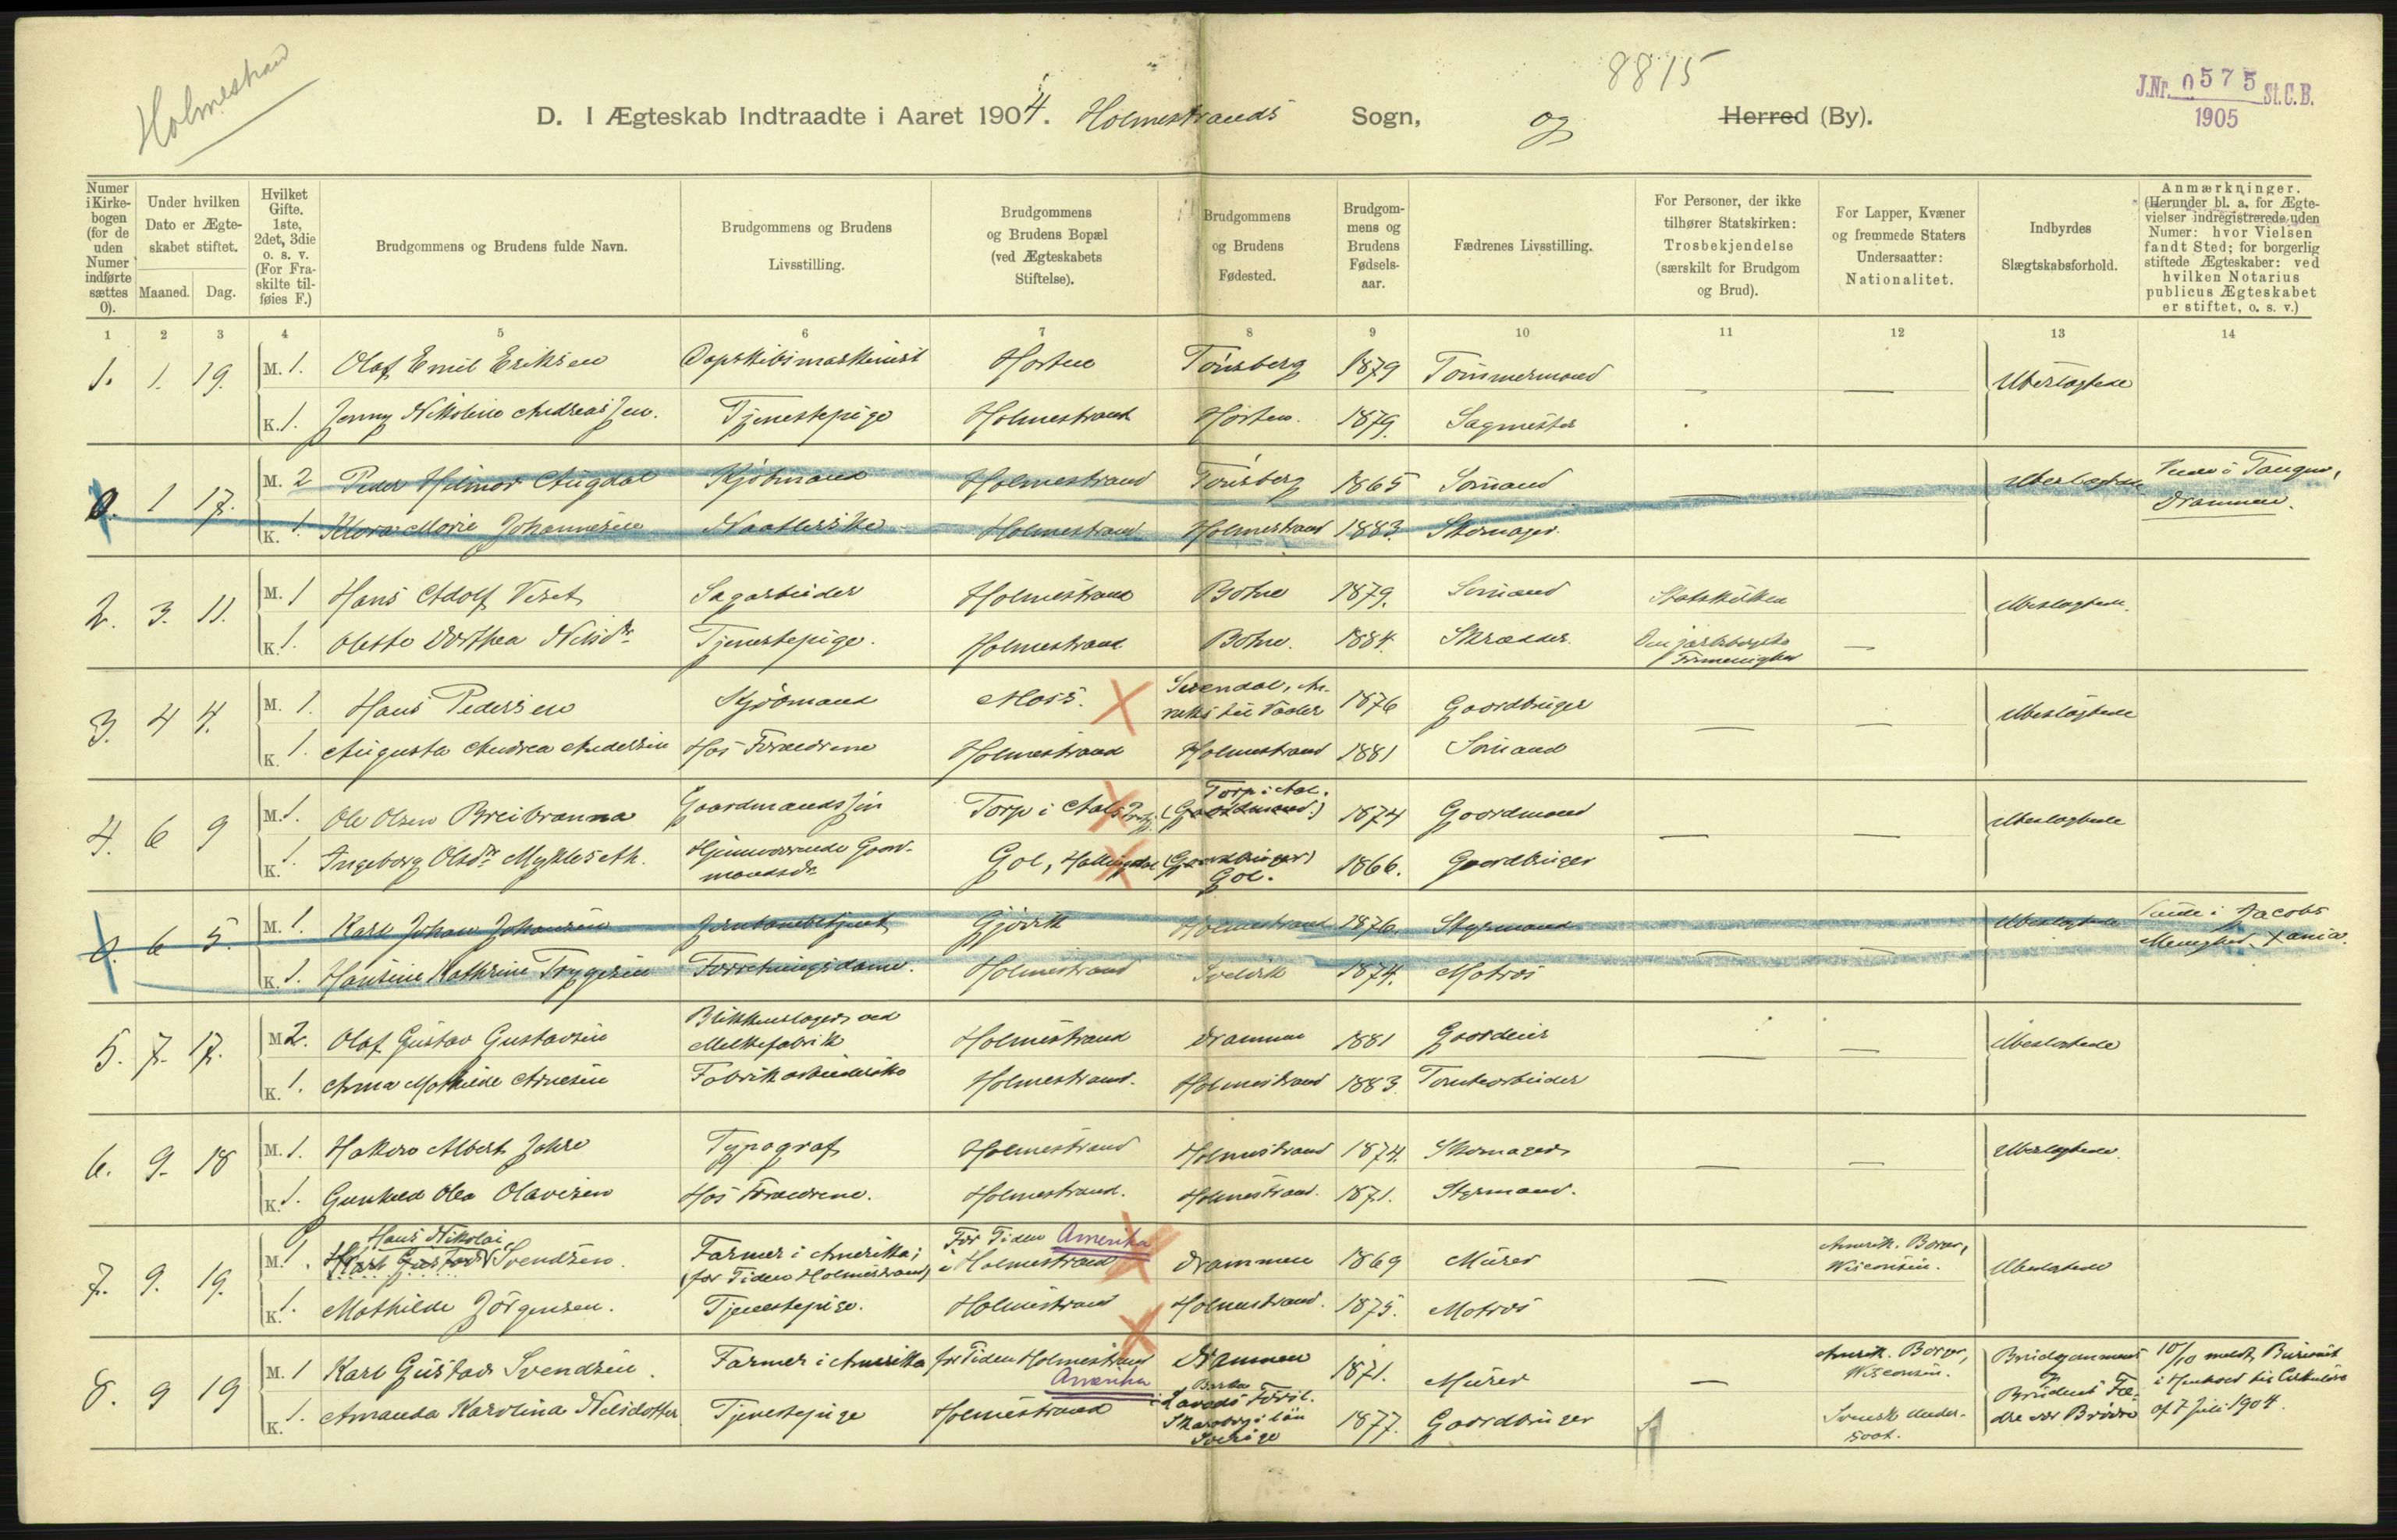 Holmestrand
8815
J.Nr. 0575 St.C.B.
1905
D. I Ægteskab Indtraadte i Aaret 1904. Holmestrands Sogn, og Herred (By).
Numer i Kirkebogen (for de uden Numer indførte sættes 0).
Under hvilken Dato er Ægteskabet stiftet.
Maaned. Dag.
Hvilket Gifte. 1ste, 2det, 3die o. s. v. (For Fraskilte tilføies F.)
Brudgommens og Brudens fulde Navn.
Brudgommens og Brudens Livsstilling.
Brudgommens og Brudens Bopæl (ved Ægteskabets Stiftelse).
Brudgommens og Brudens Fødested.
Brudgommens og Brudens Fødselsaar.
Fædrenes Livsstilling.
For Personer, der ikke tilhører Statskirken: Trosbekjendelse (særskilt for Brudgom og Brud).
For Lapper, Kvæner og fremmede Staters Undersaatter: Nationalitet.
Indbyrdes Slægtskabsforhold.
Anmærkninger. (Herunder bl. a. for Ægtevielser indregistrerede uden Numer: hvor Vielsen fandt Sted; for borgerlig stiftede Ægteskaber: ved hvilken Notarius publicus Ægteskabet er stiftet, o. s. v.)
1 2 3 4 5 6 7 8 9 10 11 12 13 14
1. 1. 19. M. 1. Olaf Emil Eriksen Dapskibsmaskinist Horten Tønsberg 1879 Tømmermand — — Ubeslægtede
K. 1. Jenny Nikoline Andreassen. Tjenestepige Holmestrand Horten. 1879. Sagmester
0. 1 17. M. 2 Peder Hilmar Augdal Kjøbmand Holmestrand Tønsberg 1865 Sømand — — Ubeslægtede Viede i Tangen, Drammen.
K. 1. Klara Marie Johannesen Holmestrand Holmestrand 1883. Skomager.
2. 3. 11. M. 1 Hans Adolf Sagarbeider Holmestrand Botne 1879. Sømand Statskirken Ubeslægtede.
K. 1. Olette Dorthea Nilsdr Tjenestepige. Holmestrand Botne. 1884. Skrædder. Den jarlsbergske Frimenighed —
3. 4 4. M. 1. Hans Pedersen Skjømand Moss. 1876 Gaardbruger — — Ubeslægtede
K. 1. Augusta Andrea Andersen Hos Forældrene Holmestrand Holmestrand 1881 Sømand
4. 6 9 M. 1. Ole Olsen Breibranna Gaardmandssøn Torp i Aal Torp i Aal. (Gaardmand.) 1874 Gaardmand — — Ubeslægtede
K. 1. Ingeborg Olsdr Mykleseth. Hjemmeværende Gaardmandsdr Gol, Hallingdal (Gaardbruger) Gol. 1866. Gaardbruger
0. 6 5. M. 1. Karl Johan Johansen Jernbanebetjent Gjøvik Holmestrand 1876. Styrmand — — Ubeslægtede Viede i Jacobs Menighed, Xania.
K. 1. Hansine Kathrine Trygesen Forretningsdame. Holmestrand Svelvik 1874. Matros
5. 7. 17. M. 2. Olaf Gustav Gustavsen Blikkenslager ved Melkefabrik Holmestrand Drammen 1881 Gaardeier — — Ubeslægtede
K. 1. Anna Mathilde Arnesen Fabrikarbeiderske Holmestrand. Holmestrand 1883. Tomtearbeider
6. 9. 18 M. 1. Hakon Albert Jahre Typograf Holmestrand Holmestrand 1874. Skomager — — Ubeslægtede.
K. 1. Gunhild Olea Olavesen Hos Forældrene. Holmestrand. Holmestrand. 1871. Styrmand.
7. 9. 19. M. 1. Hans Nikolai Karl Gustav Svendsen. Farmer i Amerika; (for Tiden Holmestrand) For Tiden Amerika i Holmestrand Drammen 1869 Murer — Amerik. Borger, Wisconsin. Ubeslægtede
K. 1. Mathilde Jørgensen. Tjenestepige. Holmestrand Holmestrand. 1875. Matros
8. 9 19 M. 1 Karl Gustav Svendsen. Farmer i Amerika for Tiden Holmestrand Amerika Drammen 1871. Murer — Amerik. Borger, Wisconsin. Brudgommens og Brudens Fædre var Brødre 10/10 meldt Bureauet i Henhold til Cirkulære af 7 Juli 1904.
K. 1. Amanda Karolina Nilsdotter Tjenestepige Holmestrand Skaraborgs län Sverige 1877. Gaardbruger Svensk Undersaat.